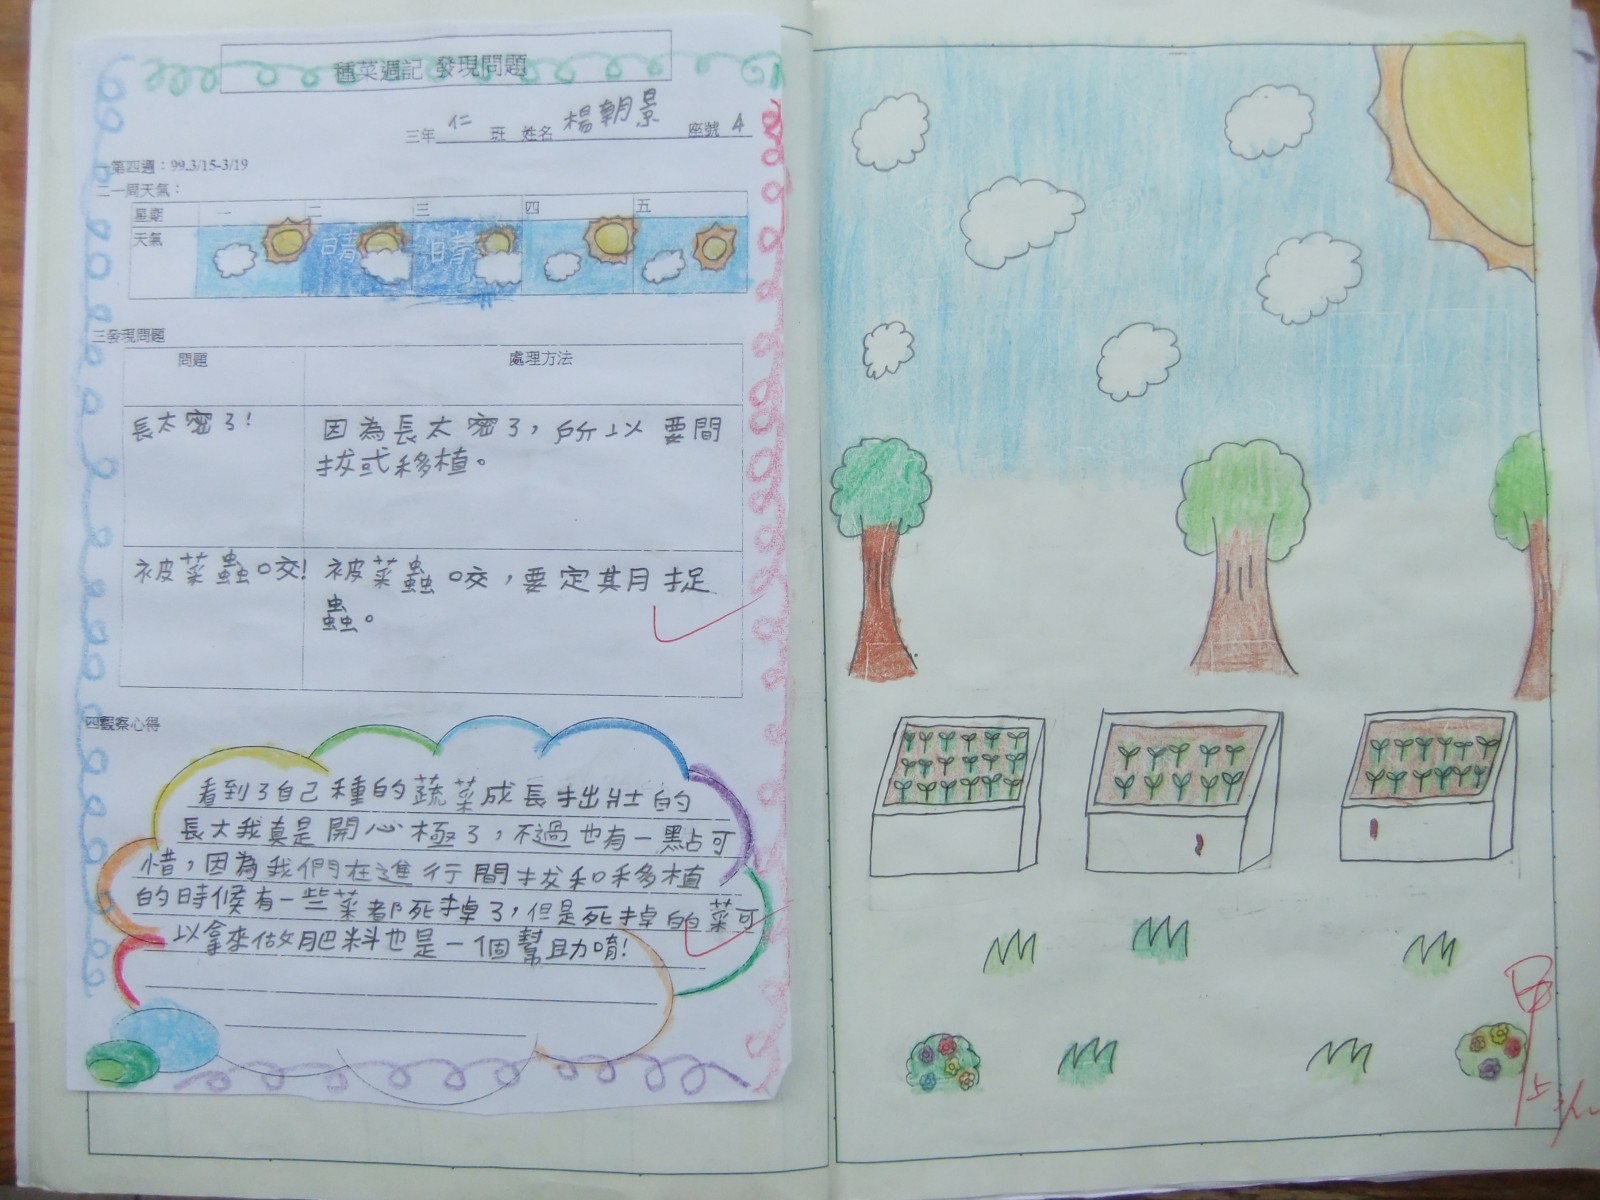 種菜週記 發現問題
三年 仁 班 姓名 楊朝景 座號 4
一第四週：99.3/15-3/19
二一周天氣：
星期 一 二 三 四 五
天氣
三發現問題
問題 處理方法
長太密了! 因為長太密了，所以要間
拔或移植。
被菜蟲咬! 被菜蟲咬，要定期捉
蟲。
四觀察心得
看到了自己種的蔬菜成長茁壯的
長大我真是開心極了，不過也有一點可
惜，因為我們在進行間拔和移植
的時候有一些菜都死掉了，但是死掉的菜可
以拿來做肥料也是一個幫助唷!